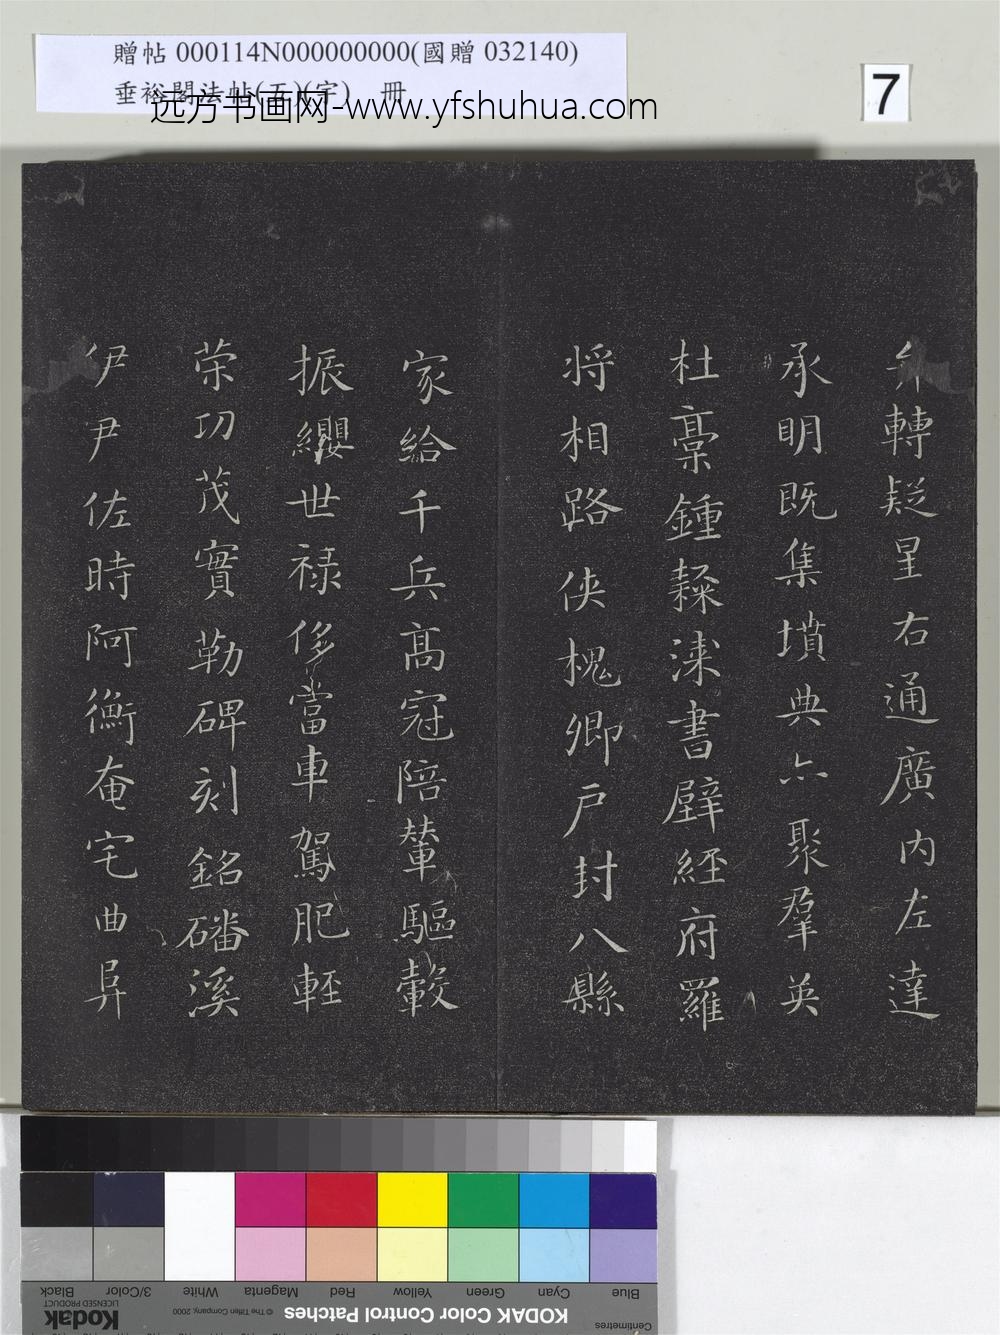 贈帖 000114N000000000(國贈 032140)
垂裕閣法帖(五)(字) 冊
远方书画网-www.yfshuhua.com
7
弁轉疑星右通廣內左達
承明既集墳典亦聚羣英
杜稾鍾隸漆書壁經府羅
將相路俠槐卿戶封八縣
家給千兵高冠陪輦驅轂
振纓世祿侈富車駕肥輕
榮功茂實勒碑刻銘磻溪
伊尹佐時阿衡奄宅曲
Blue
Cyan
Green
Yellow
Red
Magenta
White
3/Color
Black
Centimetres
KODAK Color Control Patches
© The Tiffen Company, 2000
Kodak
LICENSED PRODUCT